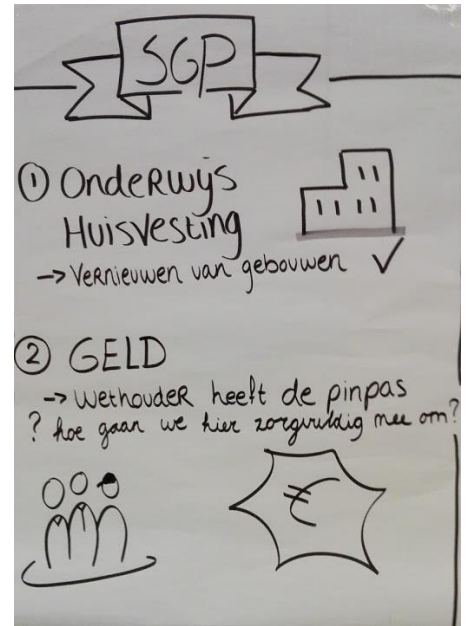 SGP
① Onderwijs
Huisvesting
→ Vernieuwen van gebouwen ✓
② GELD
→ wethouder heeft de pinpas
? hoe gaan we hier zorgvuldig mee om?
€